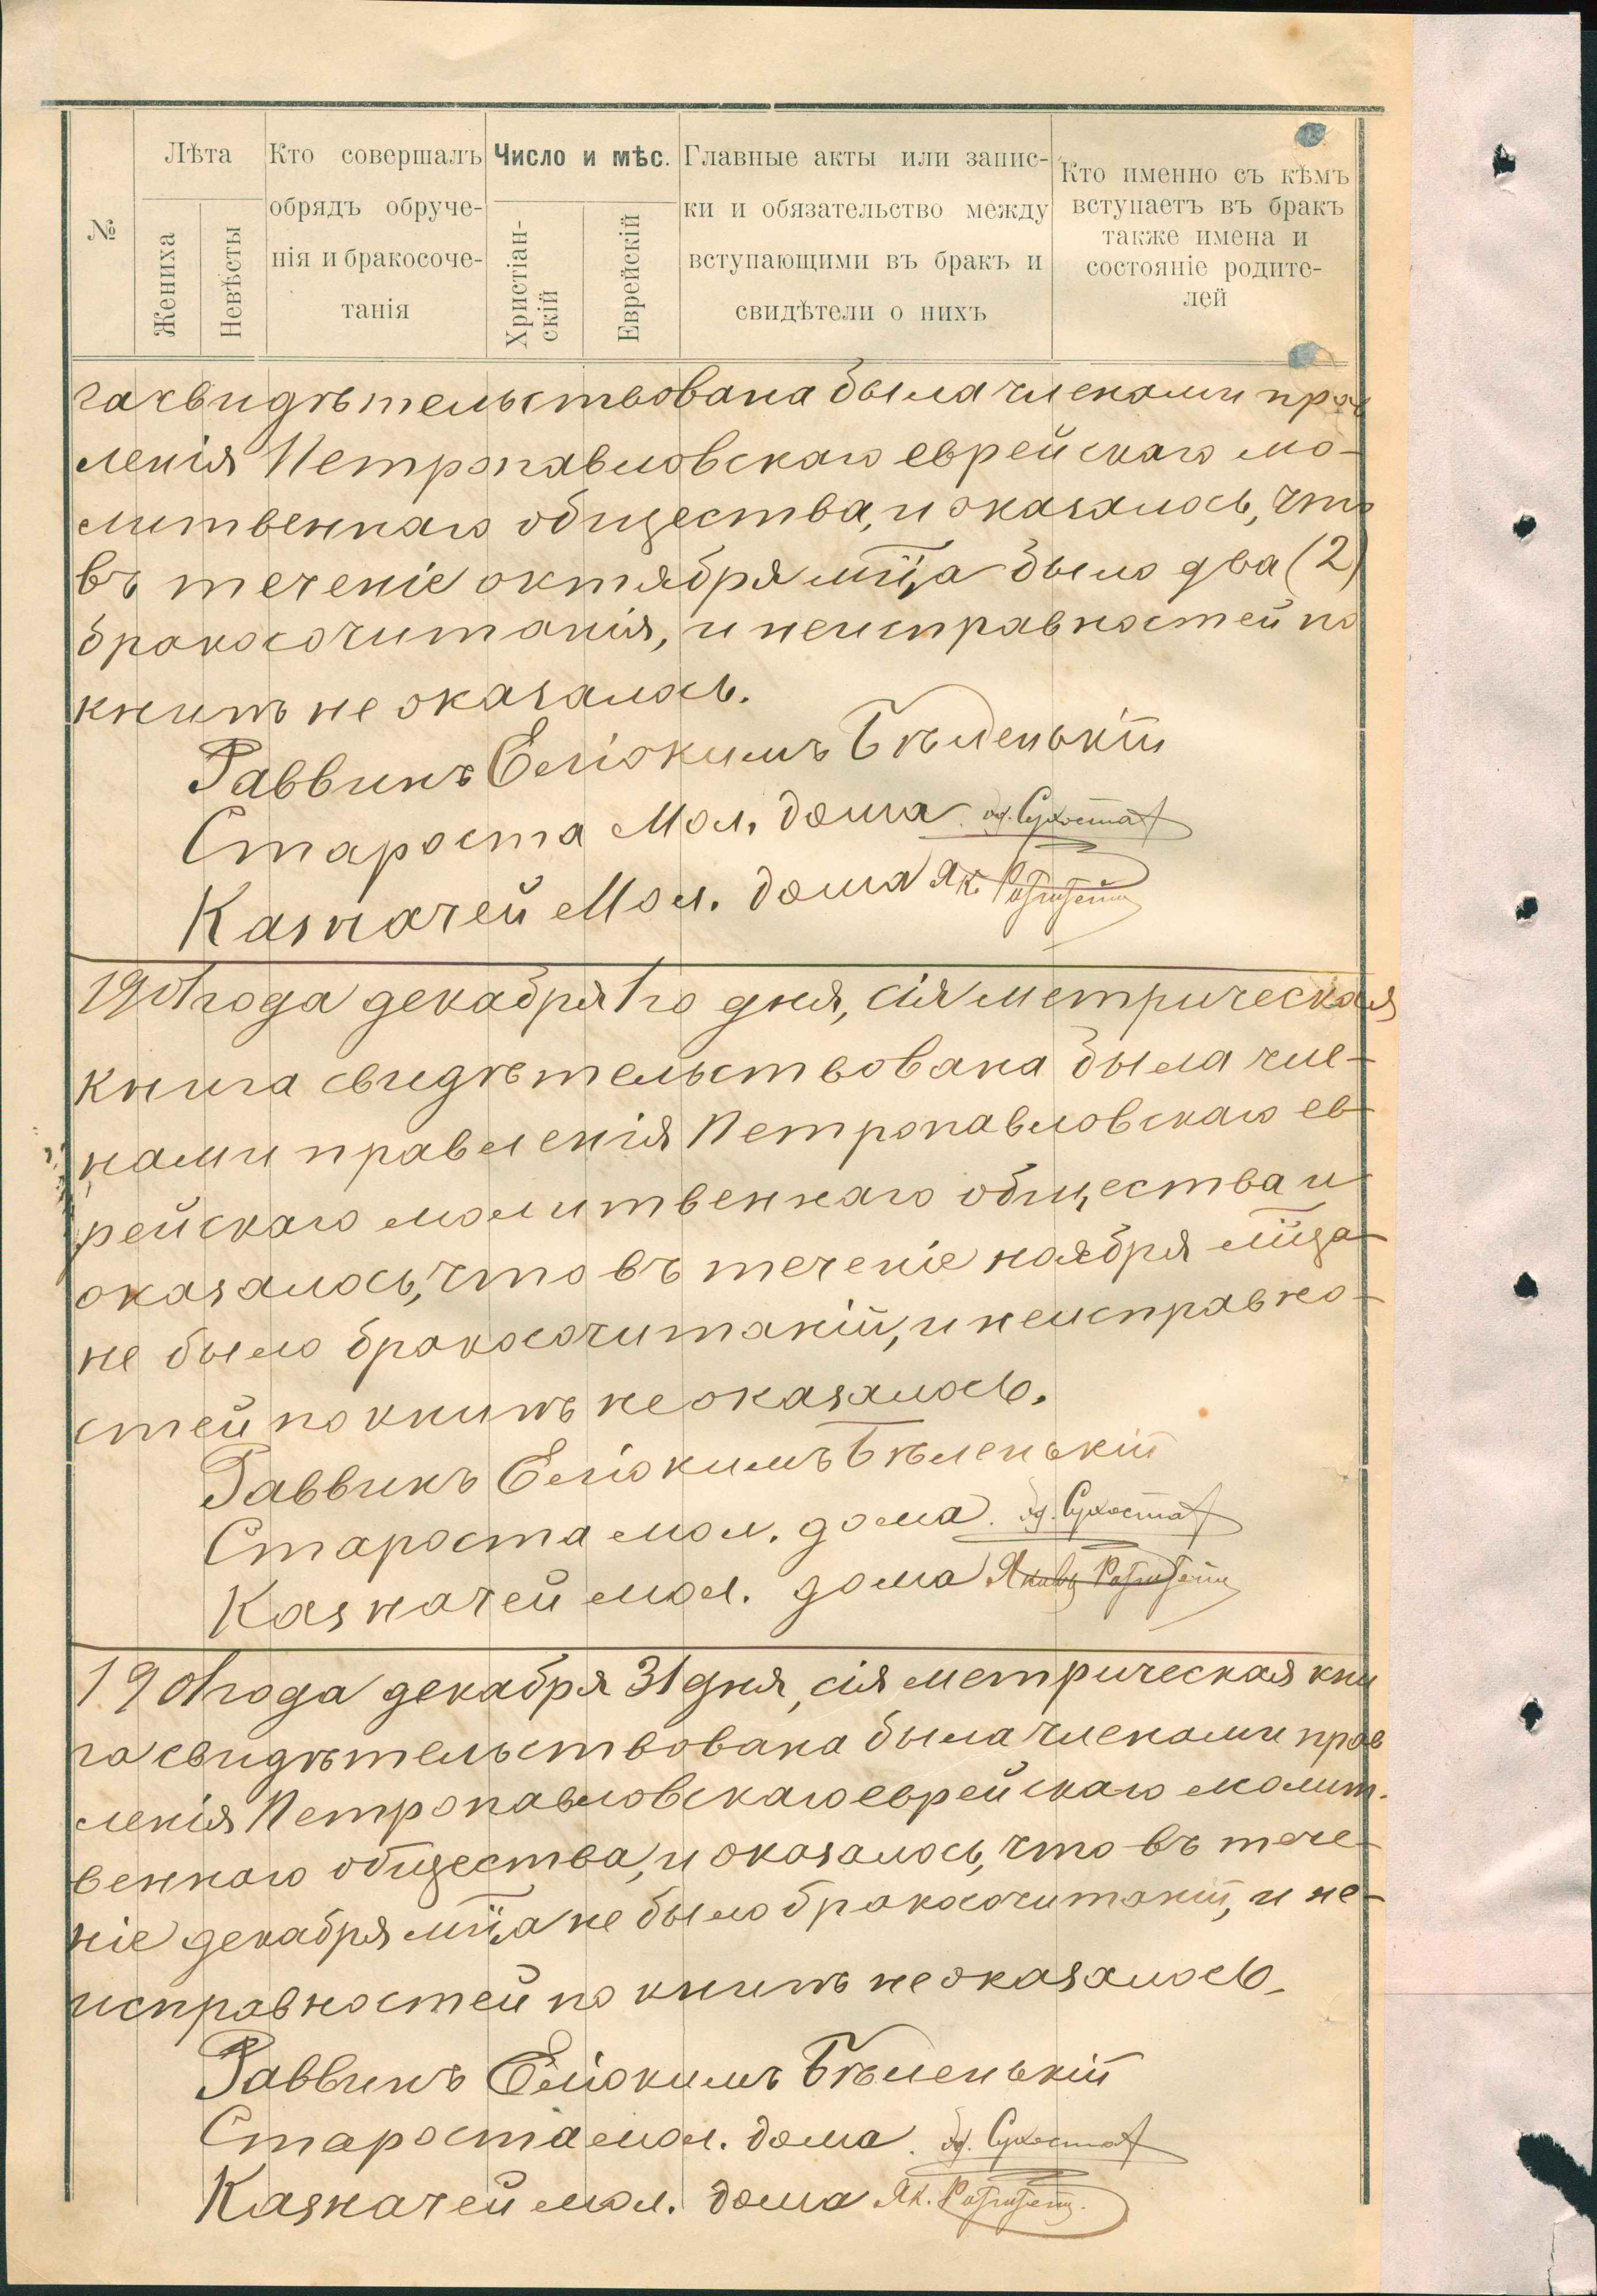 №
Лѣта
Жениха
Невѣсты
Кто совершалъ
обрядъ обруче-
нія и бракосоче-
танія
Число и мѣс.
Христіан-
скій
Еврейскій
Главные акты или запис-
ки и обязательство между
вступающими въ бракъ и
свидѣтели о нихъ
Кто именно съ кѣмъ
вступаетъ въ бракъ
также имена и
состояніе родите-
лей
га свидѣтельствована была членами прав
ленія Петропавловскаго еврейскаго мо-
литвеннаго общества, и оказалось, что
въ теченіе октября мца было два (2)
бракосочитанія, и неисправностей по
книгѣ не оказалось.
Раввинъ Еліокимъ Бѣленькій
Староста мол. дома
Казначей мол. дома Як.
1901 года декабря 1го дня, сія метрическая
книга свидѣтельствована была чле-
нами правленія Петропавловскаго ев-
рейскаго молитвеннаго общества и
оказалось, что въ теченіе ноября мца
не было бракосочитаній, и неисправно-
стей по книгѣ не оказалось.
Раввинъ Еліокимъ Бѣленькій
Староста мол. дома
Казначей мол. дома
1901 года декабря 31 дня, сія метрическая кни
га свидѣтельствована была членами прав
ленія Петропавловскаго еврейскаго молит-
веннаго общества, и оказалось, что въ тече-
ніе декабря мца не было бракосочитаній, и не-
исправностей по книгѣ не оказалось.
Раввинъ Еліокимъ Бѣленькій
Староста мол. дома
Казначей мол. дома Як.